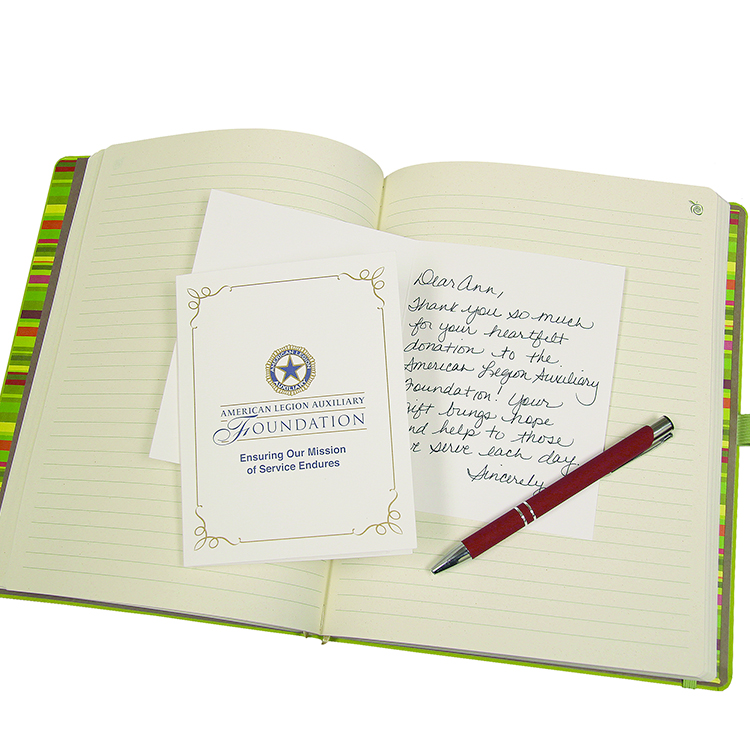 AMERICAN LEGION
AUXILIARY
AMERICAN LEGION AUXILIARY
FOUNDATION
Ensuring Our Mission
of Service Endures
Dear Ann,
Thank you so much
for your heartfelt
donation to the
American Legion Auxiliary
Foundation! Your
gift brings hope
and help to those
we serve each day.
Sincerely,